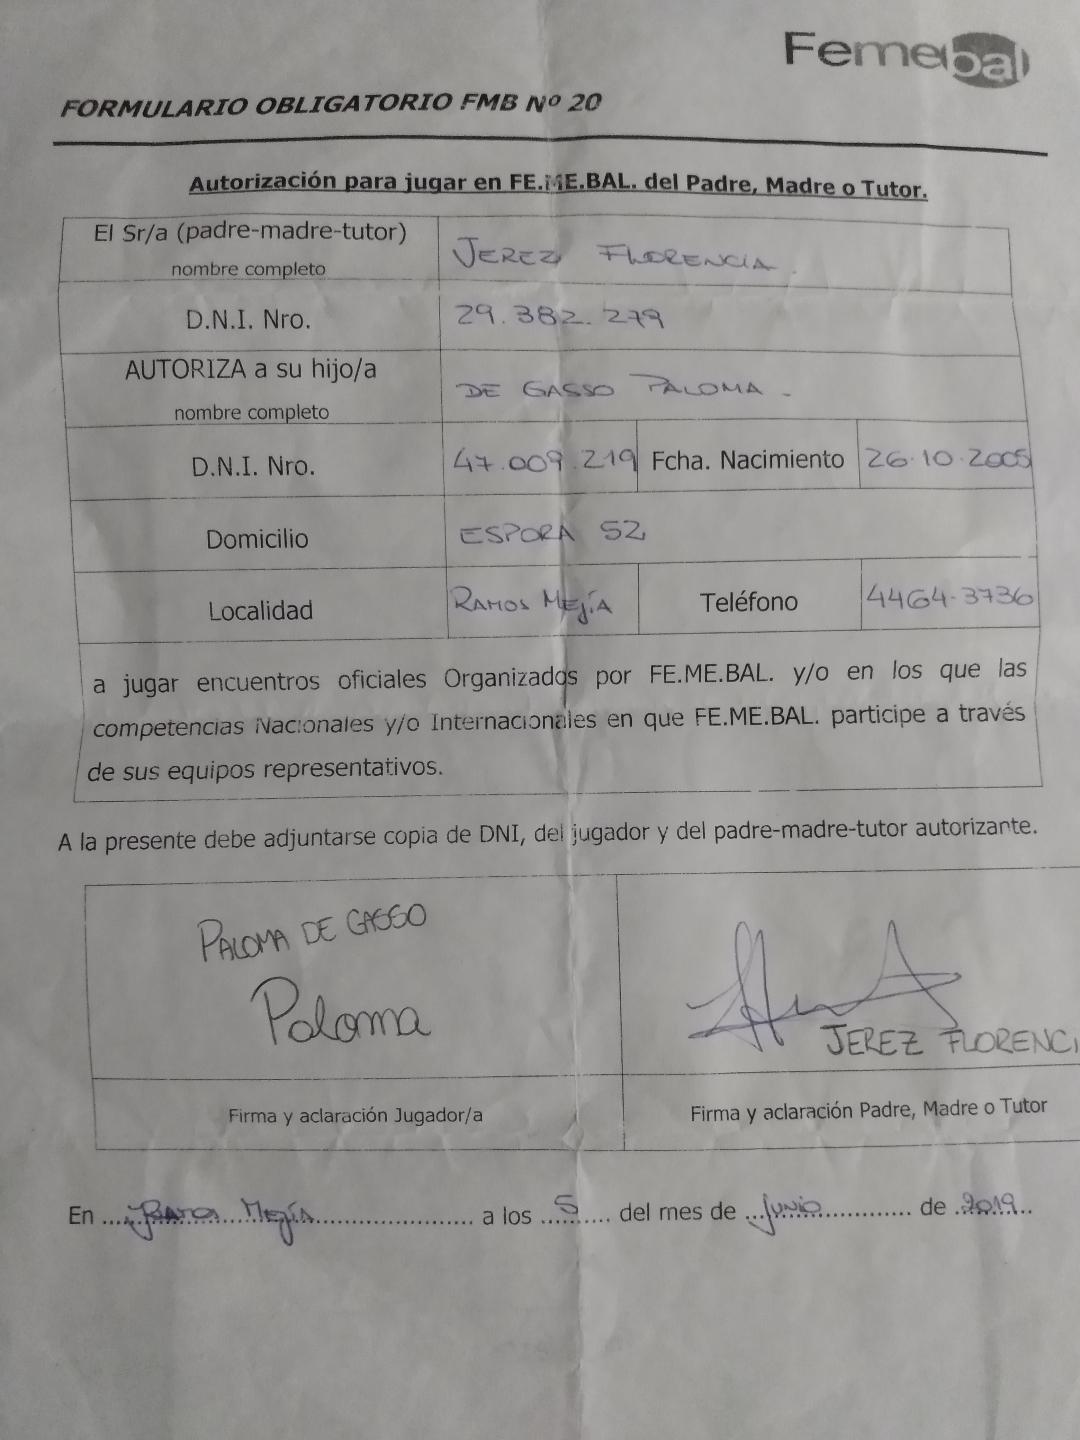 Femebal
FORMULARIO OBLIGATORIO FMB Nº 20
Autorización para jugar en FE.ME.BAL. del Padre, Madre o Tutor.
El Sr/a (padre-madre-tutor)
nombre completo
JEREZ FLORENCIA.
D.N.I. Nro.
29.382.279
AUTORIZA a su hijo/a
nombre completo
DE GASSO PALOMA -
D.N.I. Nro. 47.009.219 Fcha. Nacimiento 26.10.2005
Domicilio ESPORA 52
Localidad RAMOS MEJÍA Teléfono 4464-3736
a jugar encuentros oficiales Organizados por FE.ME.BAL. y/o en los que las
competencias Nacionales y/o Internacionales en que FE.ME.BAL. participe a través
de sus equipos representativos.
A la presente debe adjuntarse copia de DNI, del jugador y del padre-madre-tutor autorizante.
PALOMA DE GASSO
Paloma
JEREZ FLORENCI
Firma y aclaración Jugador/a
Firma y aclaración Padre, Madre o Tutor
En Ramos Mejía a los 5 del mes de Junio de 2019